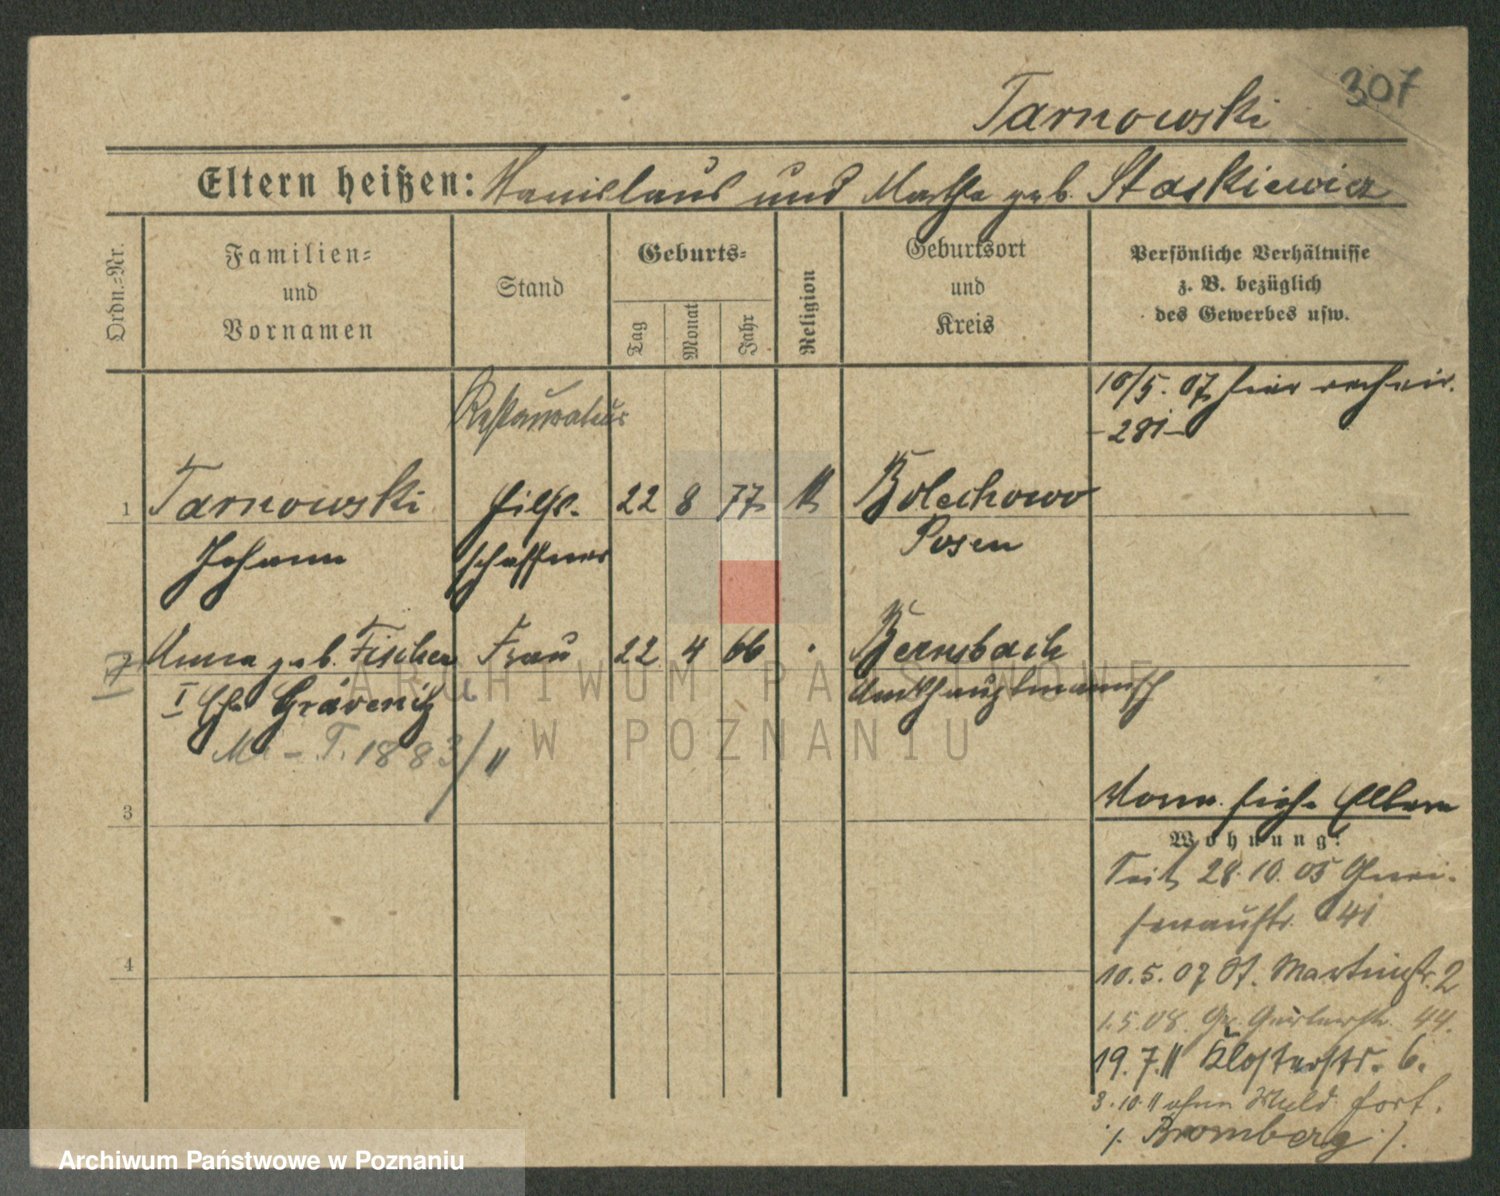 307
Tarnowski
Eltern heißen: Stanislaus und Martha geb. Staskiewicz
Ordn.-Nr.
Familien-
und
Vornamen
Stand
Geburts-
Tag
Monat
Jahr
Religion
Geburtsort
und
Kreis
Persönliche Verhältnisse
z. B. bezüglich
des Gewerbes usw.
10/5. 07 hier
-281-
Restaurateur
1 Tarnowski Hilfs- 22 8 77 Bolechowo
Johann schaffner Posen
2 Anna geb. Fischer Frau 22 4 66 Bernsbach
I Ehe Grävenitz Amtshauptmannsch
M. - T. 1883/"
3
Vorw. siehe Eltern
Wohnung:
Seit 28.10.05 Gnei-
senaustr. 41
4
10.5.07 St. Martinstr. 2
1.5.08. Gr. Gerberstr. 44.
19.7.11 Klosterstr. 6.
3.10.11 ohne Meld. fort.
/. Bromberg /.
ARCHIWUM PAŃSTWOWE
W POZNANIU
Archiwum Państwowe w Poznaniu